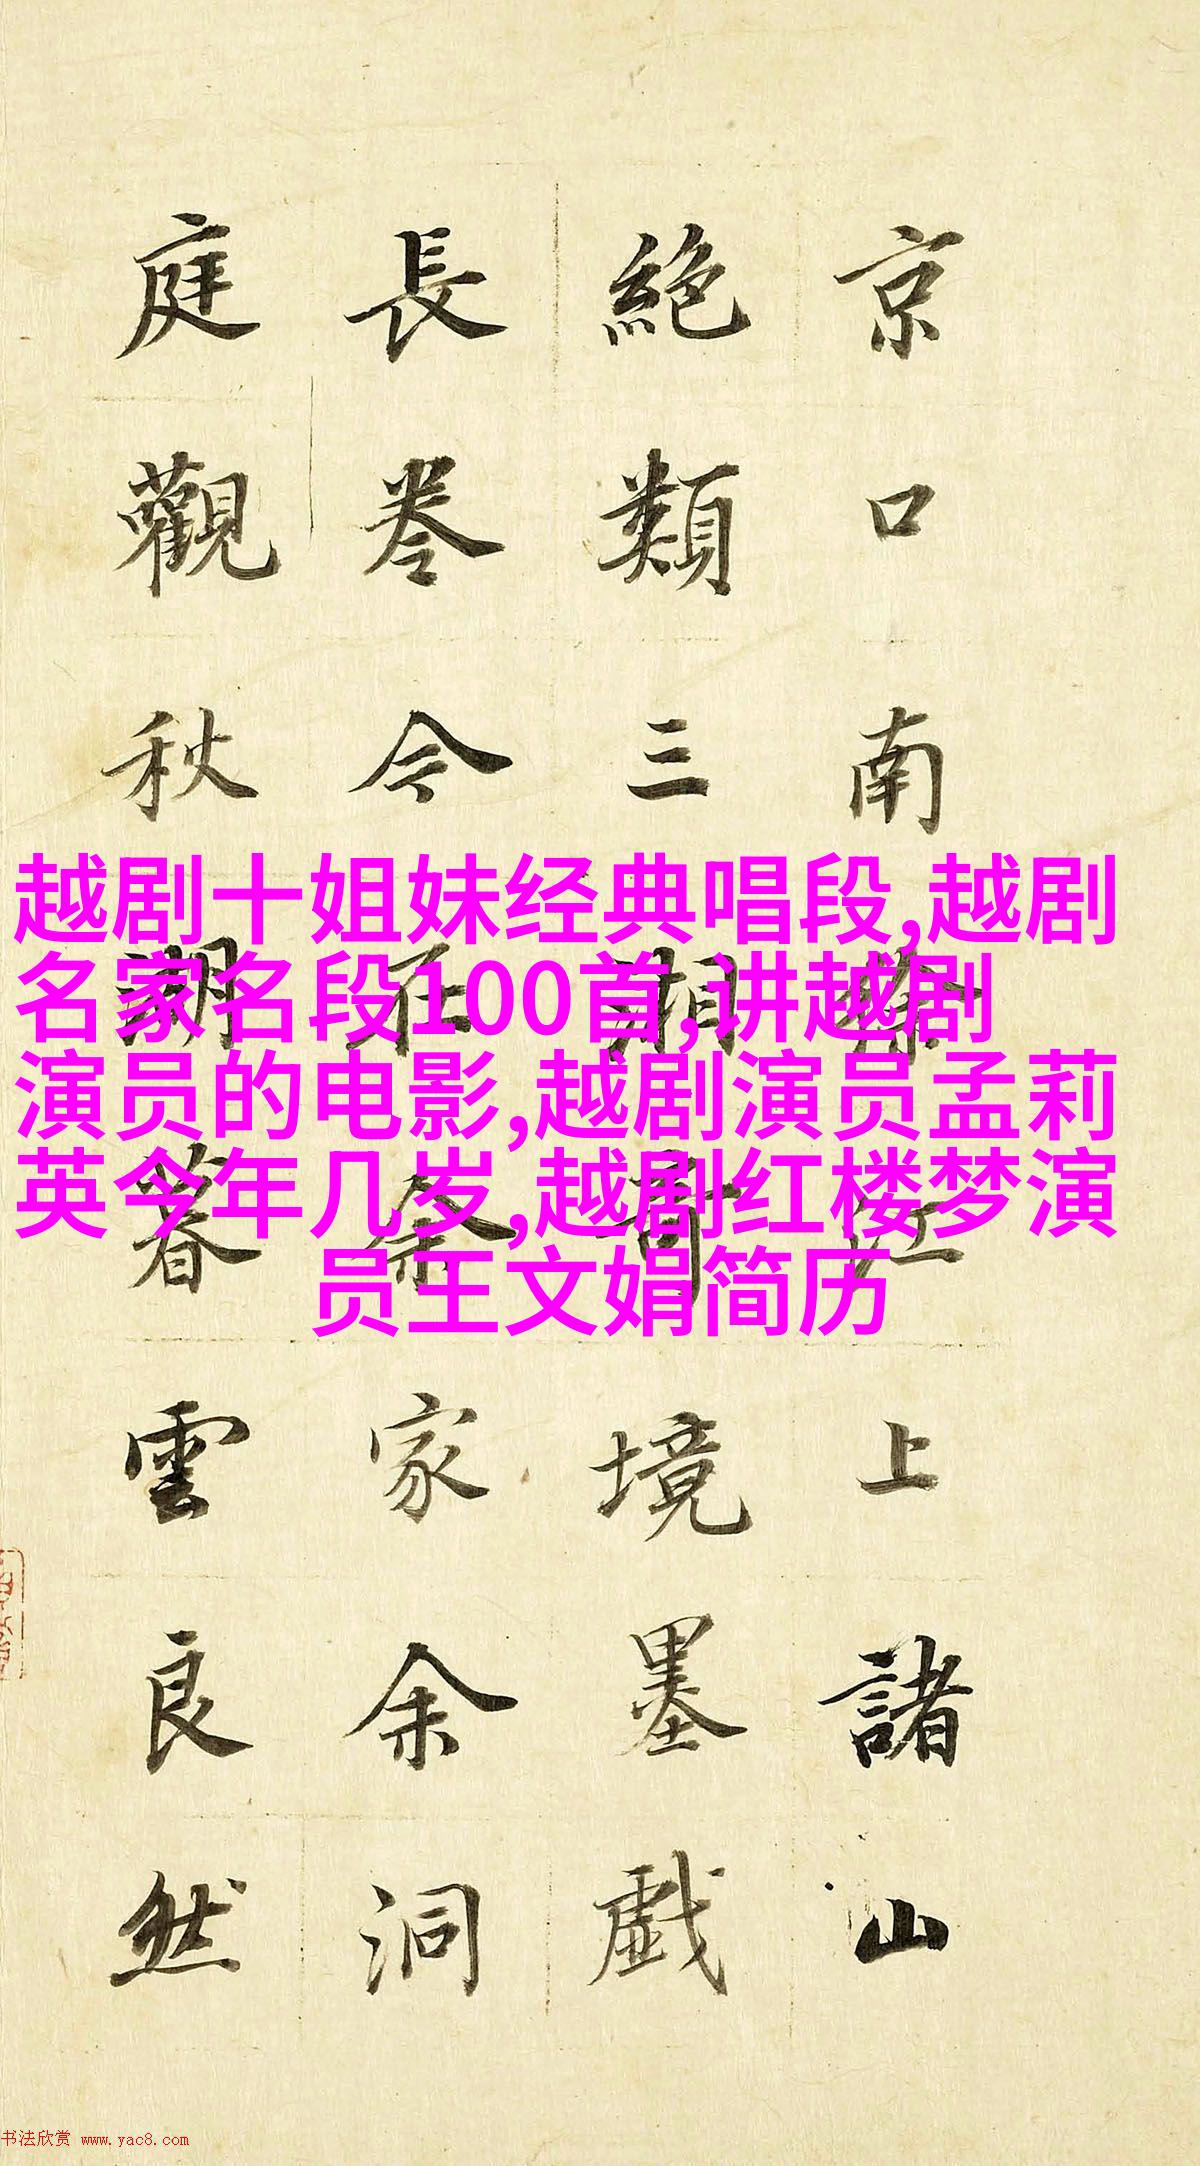 京口南徐江上諸山
絕類三湘奇境墨戲
長卷今在余家余洞
庭觀秋湖暮雲良然
越剧十姐妹经典唱段,越剧
名家名段100首,讲越剧
演员的电影,越剧演员孟莉
英今年几岁,越剧红楼梦演
员王文娟简历
书法欣赏 www.yac8.com